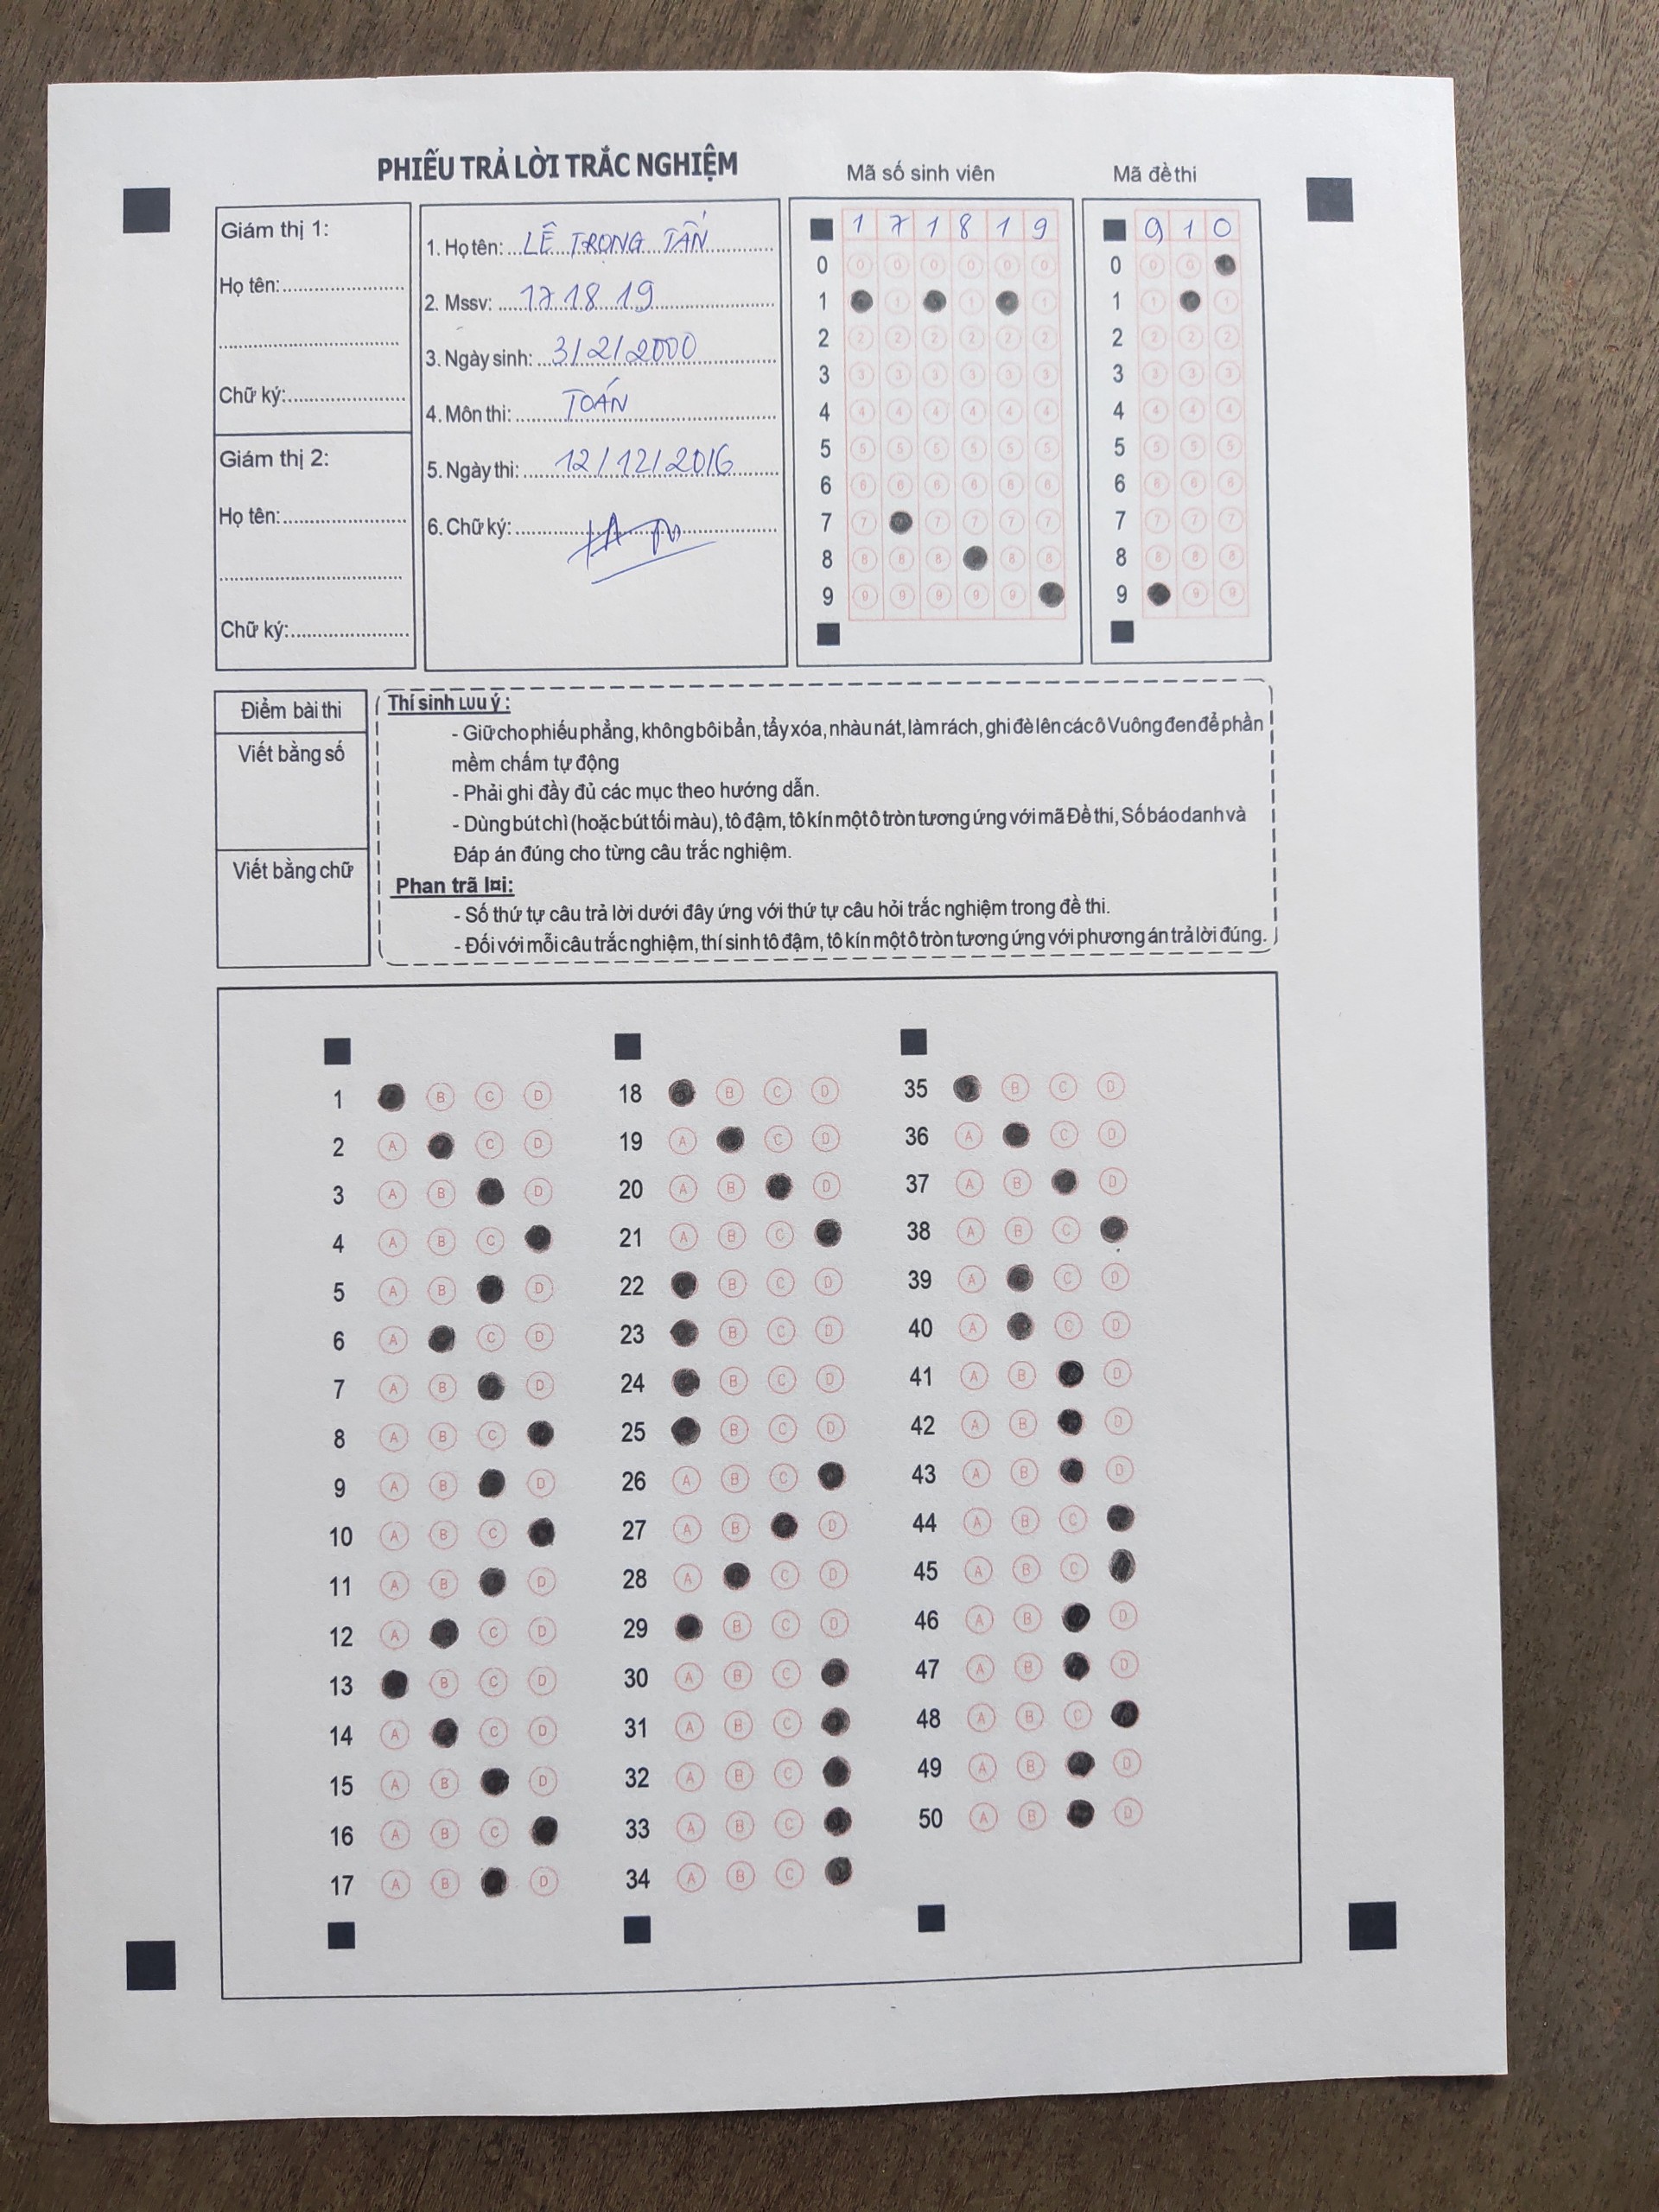 PHIẾU TRẢ LỜI TRẮC NGHIỆM
Mã số sinh viên
Mã đề thi
Giám thị 1:
Họ tên:
Chữ ký:
Giám thị 2:
Họ tên:
Chữ ký:
1. Họ tên: LÊ TRỌNG TẤN
2. Mssv: 171819
3. Ngày sinh: 3/2/2000
4. Môn thi: TOÁN
5. Ngày thi: 12/12/2016
6. Chữ ký:
1 7 1 8 1 9
0 0 0 0 0 0 0
1 1 1 1
2 2 2 2 2 2 2
3 3 3 3 3 3 3
4 4 4 4 4 4 4
5 5 5 5 5 5 5
6 6 6 6 6 6 6
7 7 7 7 7 7
8 8 8 8 8 8
9 9 9 9 9 9
9 1 0
0 0 0
1 1 1
2 2 2 2
3 3 3 3
4 4 4 4
5 5 5 5
6 6 6 6
7 7 7 7
8 8 8 8
9 9 9
Điểm bài thi
Viết bằng số
Viết bằng chữ
Thí sinh Lưu ý :
- Giữ cho phiếu phẳng, không bôi bẩn, tẩy xóa, nhàu nát, làm rách, ghi đè lên các ô Vuông đen để phần
mềm chấm tự động
- Phải ghi đầy đủ các mục theo hướng dẫn.
- Dùng bút chì (hoặc bút tối màu), tô đậm, tô kín một ô tròn tương ứng với mã Đề thi, Số báo danh và
Đáp án đúng cho từng câu trắc nghiệm.
Phan trã l¤i:
- Số thứ tự câu trả lời dưới đây ứng với thứ tự câu hỏi trắc nghiệm trong đề thi.
- Đối với mỗi câu trắc nghiệm, thí sinh tô đậm, tô kín một ô tròn tương ứng với phương án trả lời đúng.
1 B C D
2 A C D
3 A B D
4 A B C
5 A B D
6 A C D
7 A B D
8 A B C
9 A B D
10 A B C
11 A B D
12 A C D
13 B C D
14 A C D
15 A B D
16 A B C
17 A B D
18 B C D
19 A C D
20 A B D
21 A B C
22 B C D
23 B C D
24 B C D
25 B C D
26 A B C
27 A B D
28 A C D
29 B C D
30 A B C
31 A B C
32 A B C
33 A B C
34 A B C
35 B C D
36 A C D
37 A B D
38 A B C
39 A C D
40 A C D
41 A B D
42 A B D
43 A B D
44 A B C
45 A B C
46 A B D
47 A B D
48 A B C
49 A B D
50 A B D